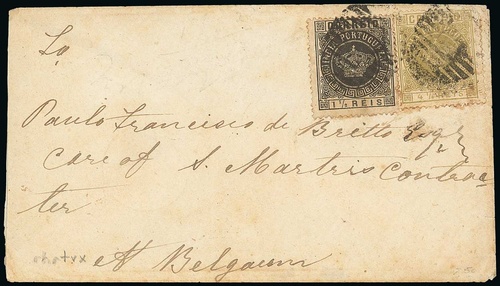 To
CORREIO
INDIA PORTUGUEZA
1½ REIS
Paulo Francisco de Britto Esqr
Care of S. Martris Contrac-
ter
At Belgaum